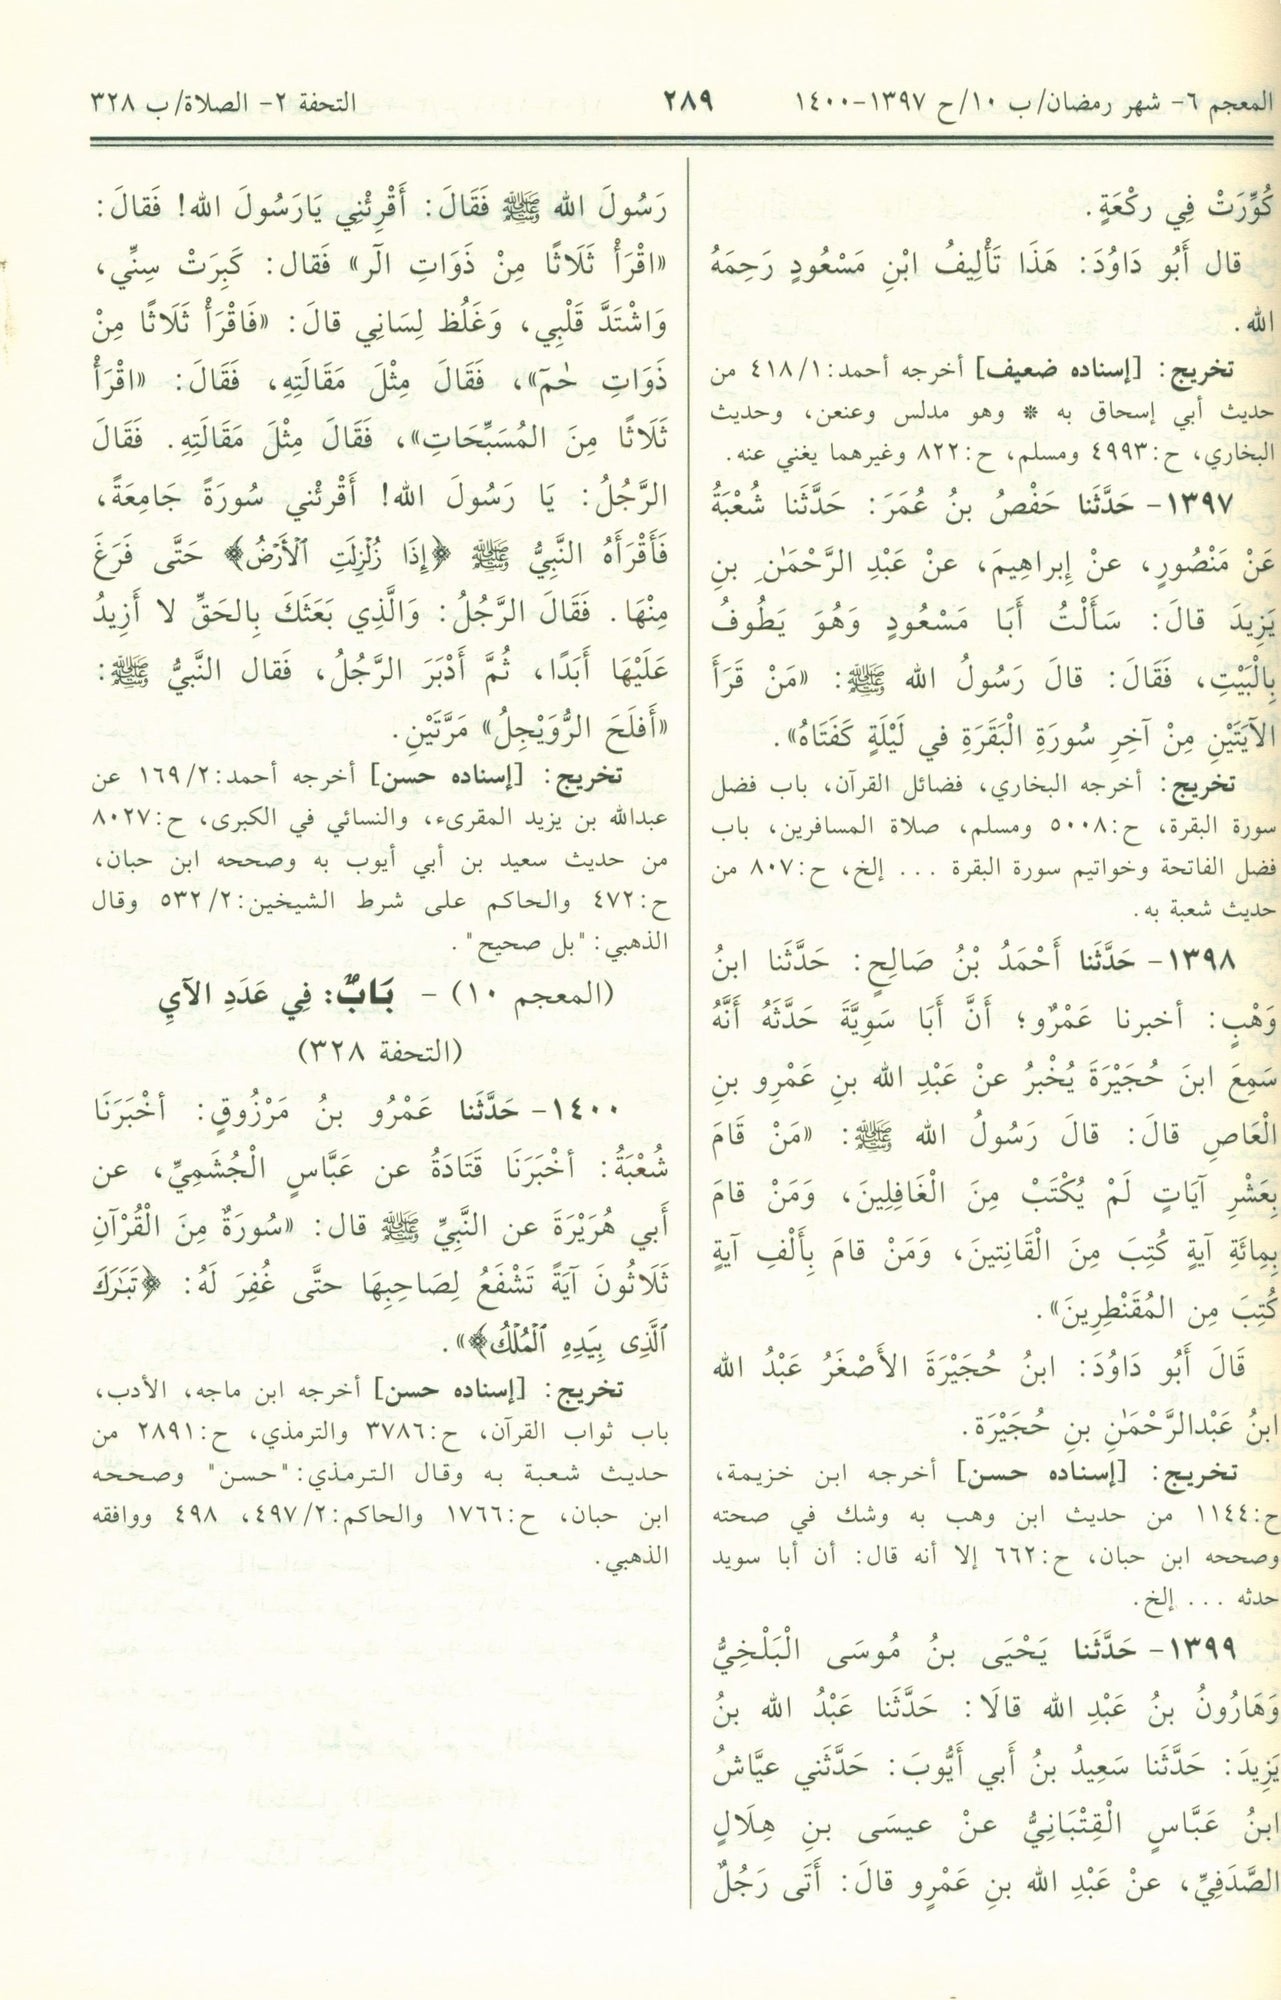 المعجم ٦- شهر رمضان/ ب ١٠/ ح ١٣٩٧-١٤٠٠
٢٨٩
التحفة ٢- الصلاة/ ب ٣٢٨
كُوِّرَتْ فِي رَكْعَةٍ.
قال أَبُو دَاوُدَ: هَذَا تَأْلِيفُ ابْنِ مَسْعُودٍ رَحِمَهُ
الله.
تخريج: [إسناده ضعيف] أخرجه أحمد:١/ ٤١٨ من
حديث أبي إسحاق به * وهو مدلس وعنعن، وحديث
البخاري، ح:٤٩٩٣ ومسلم، ح:٨٢٢ وغيرهما يغني عنه.
١٣٩٧- حَدَّثَنا حَفْصُ بنُ عُمَرَ: حَدَّثَنا شُعْبَةُ
عَنْ مَنْصُورٍ، عنْ إِبراهِيمَ، عنْ عَبْدِ الرَّحْمَنِ بنِ
يَزِيدَ قالَ: سَأَلْتُ أَبَا مَسْعُودٍ وَهُوَ يَطُوفُ
بِالْبَيْتِ، فَقَالَ: قالَ رَسُولُ الله ﷺ: «مَنْ قَرَأَ
الآيَتَيْنِ مِنْ آخِرِ سُورَةِ الْبَقَرَةِ في لَيْلَةٍ كَفَتَاهُ».
تخريج: أخرجه البخاري، فضائل القرآن، باب فضل
سورة البقرة، ح:٥٠٠٨ ومسلم، صلاة المسافرين، باب
فضل الفاتحة وخواتيم سورة البقرة ... إلخ، ح:٨٠٧ من
حديث شعبة به.
١٣٩٨- حَدَّثَنا أَحْمَدُ بْنُ صَالِحٍ: حَدَّثَنا ابنُ
وَهْبٍ: أخبرنا عَمْرٌو؛ أَنَّ أَبَا سَوِيَّةَ حَدَّثَهُ أَنَّهُ
سَمِعَ ابنَ حُجَيْرَةَ يُخْبِرُ عنْ عَبْدِ الله بنِ عَمْرِو بنِ
الْعَاصِ قالَ: قالَ رَسُولُ الله ﷺ: «مَنْ قَامَ
بِعَشْرِ آيَاتٍ لَمْ يُكْتَبْ مِنَ الْغَافِلِينَ، وَمَنْ قامَ
بِمِائَةِ آيَةٍ كُتِبَ مِنَ الْقَانِتينَ، وَمَنْ قامَ بِأَلْفِ آيَةٍ
كُتِبَ مِن المُقَنْطِرِينَ».
قَالَ أَبُو دَاوُدَ: ابنُ حُجَيْرَةَ الأَصْغَرُ عَبْدُ الله
ابنُ عَبْدالرَّحْمَنِ بنِ حُجَيْرَة.
تخريج: [إسناده حسن] أخرجه ابن خزيمة،
ح:١١٤٤ من حديث ابن وهب به وشك في صحته
وصححه ابن حبان، ح:٦٦٢ إلا أنه قال: أن أبا سويد
حدثه ... إلخ.
١٣٩٩- حَدَّثَنا يَحْيَى بنُ مُوسَى الْبَلْخِيُّ
وَهَارُونُ بنُ عَبْدِ الله قالَا: حَدَّثَنا عَبْدُ الله بنُ
يَزِيدَ: حَدَّثَنا سَعِيدُ بنُ أَبي أَيُّوبَ: حَدَّثَني عيَّاشُ
ابنُ عَبَّاسٍ الْقِتْبَانِيُّ عنْ عيسَى بنِ هِلَالٍ
الصَّدَفِيِّ، عنْ عَبْدِ الله بنِ عَمْرٍو قالَ: أَتَى رَجُلٌ
رَسُولَ الله ﷺ فَقَالَ: أَقْرِئْنِي يَارَسُولَ الله! فَقالَ:
«اقْرَأْ ثَلَاثًا مِنْ ذَوَاتِ الَر» فَقال: كَبِرَتْ سِنِّي،
وَاشْتَدَّ قَلْبِي، وَغَلُظ لِسَانِي قالَ: «فَاقْرَأْ ثَلَاثًا مِنْ
ذَوَاتِ حمَ»، فَقَالَ مِثْلَ مَقَالَتِهِ، فَقَالَ: «اقْرَأْ
ثَلَاثًا مِنَ المُسَبِّحَاتِ»، فَقَالَ مِثْلَ مَقَالَتِهِ. فَقَالَ
الرَّجُلُ: يَا رَسُولَ الله! أَقْرِئْني سُورَةً جَامِعَةً،
فَأَقْرَأَهُ النَّبِيُّ ﷺ ﴿إِذَا زُلْزِلَتِ ٱلْأَرْضُ﴾ حَتَّى فَرَغَ
مِنْهَا. فَقَالَ الرَّجُلُ: وَالَّذِي بَعَثَكَ بِالحَقِّ لا أَزِيدُ
عَلَيْهَا أَبَدًا، ثُمَّ أَدْبَرَ الرَّجُلُ، فَقال النَّبيُّ ﷺ:
«أَفلَحَ الرُّوَيْجِلُ» مَرَّتَيْنِ.
تخريج: [إسناده حسن] أخرجه أحمد:٢/ ١٦٩ عن
عبدالله بن يزيد المقرىء، والنسائي في الكبرى، ح:٨٠٢٧
من حديث سعيد بن أبي أيوب به وصححه ابن حبان،
ح:٤٧٢ والحاكم على شرط الشيخين:٢/ ٥٣٢ وقال
الذهبي: "بل صحيح".
(المعجم ١٠) - بَابٌ: فِي عَدَدِ الآيِ
(التحفة ٣٢٨)
١٤٠٠- حَدَّثَنا عَمْرُو بنُ مَرْزُوقٍ: أخْبَرَنَا
شُعْبَةُ: أخْبَرَنَا قَتَادَةُ عن عَبَّاسٍ الْجُشَمِيِّ، عن
أَبي هُرَيْرَةَ عن النَّبِيِّ ﷺ قال: «سُورَةٌ مِنَ الْقُرْآنِ
ثَلَاثُونَ آيَةً تَشْفَعُ لِصَاحِبِهَا حتَّى غُفِرَ لَهُ: ﴿تَبَٰرَكَ
ٱلَّذِى بِيَدِهِ ٱلْمُلْكُ﴾».
تخريج: [إسناده حسن] أخرجه ابن ماجه، الأدب،
باب ثواب القرآن، ح:٣٧٨٦ والترمذي، ح:٢٨٩١ من
حديث شعبة به وقال الترمذي: "حسن" وصححه
ابن حبان، ح:١٧٦٦ والحاكم:٢/ ٤٩٧، ٤٩٨ ووافقه
الذهبي.